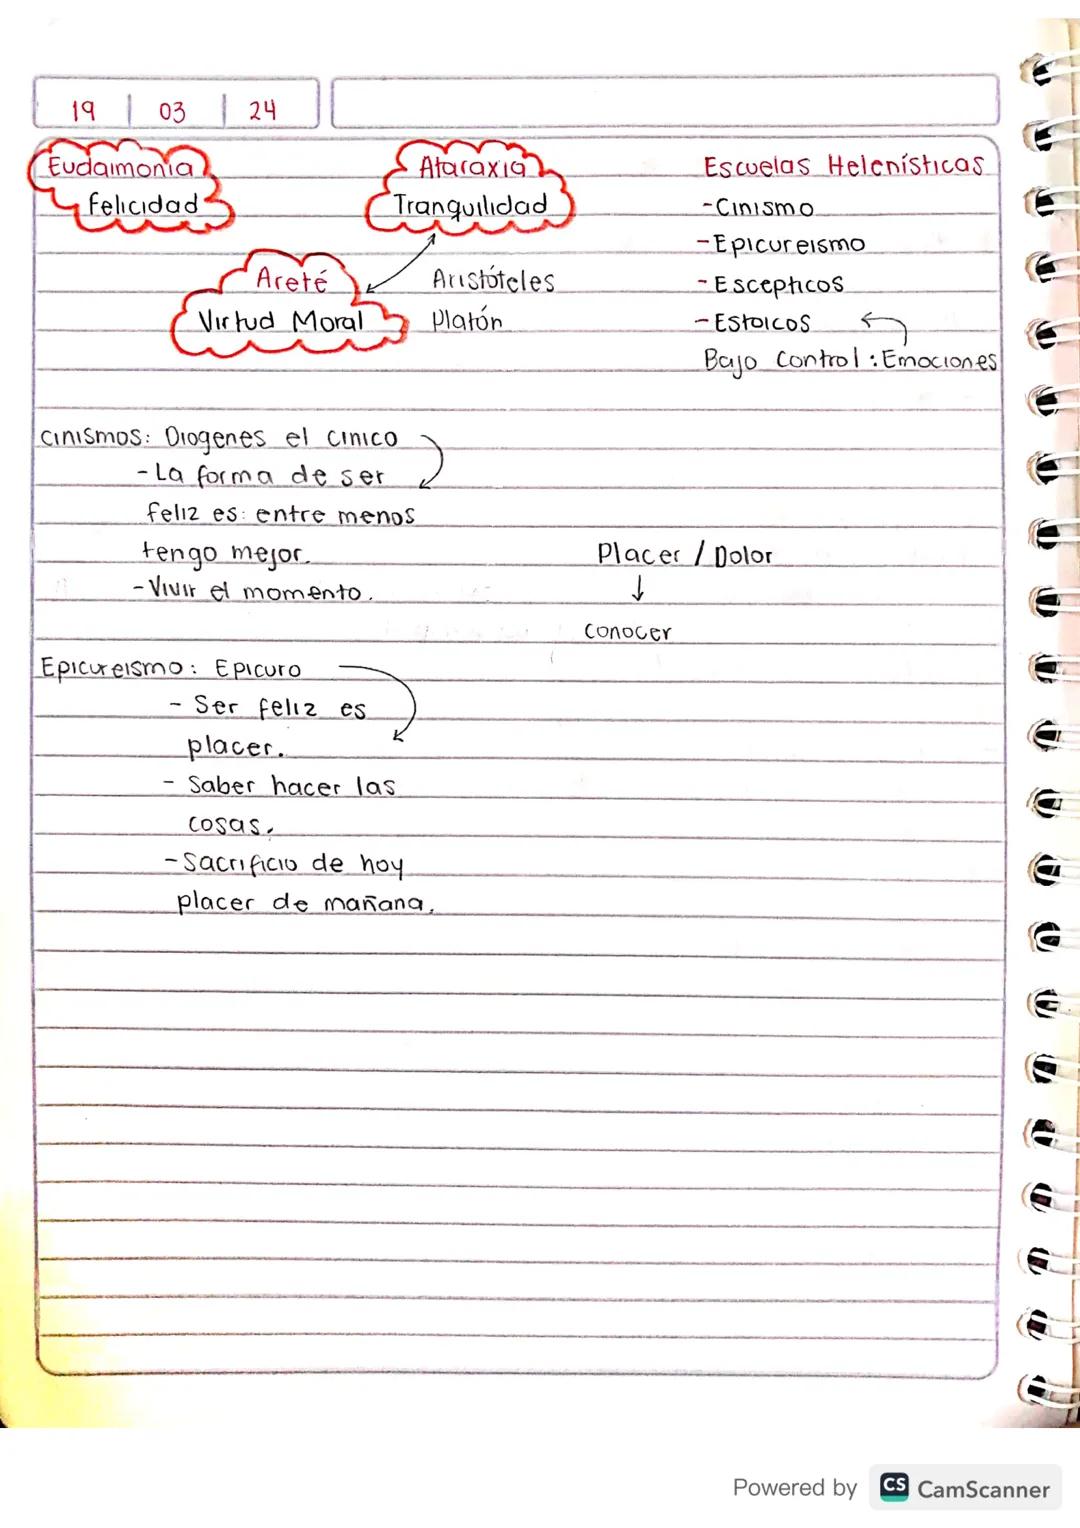 19 | 03 | 24
Eudaimonia
felicidad
Ataraxia
Tranquilidad
Areté
Virtud Moral
Aristóteles
Platón
Escuelas Helenísticas
-Cinismo
-Epicureismo
-Escepticos
-Estoicos
Bajo control: Emociones
cinismos: Diogenes el cinico
-La forma de ser
feliz es: entre menos
tengo mejor.
-Vivir el momento.
Placer / Dolor
↓
conocer
Epicureismo: Epicuro
- Ser feliz es
placer.
- Saber hacer las
cosas.
-Sacrificio de hoy
placer de mañana.
Powered by CS CamScanner